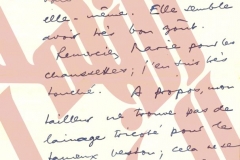 elle-même. Elle semble
avoir très bon goût.
Remerciez Marie pour les
chaussettes; j'en suis très
touché. A propos, mon
tailleur ne trouve pas de
lainage tricoté pour le
fameux veston; cela ne se